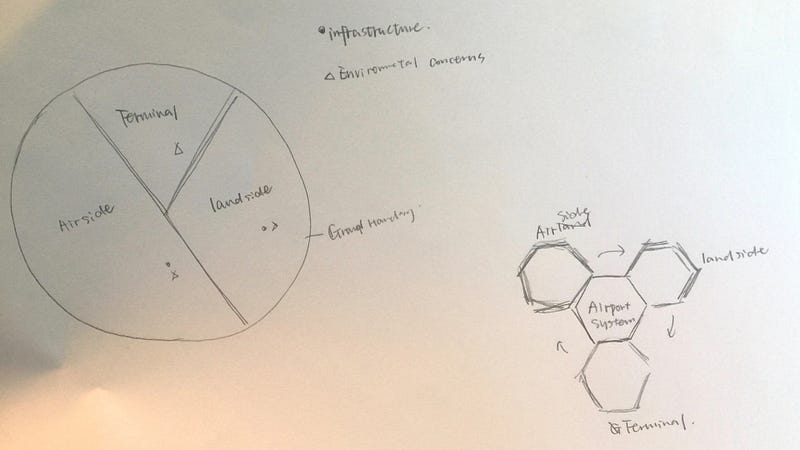 infrastructure.
Enviromental concerns
Terminal
Airside
landside
Ground Handling
Side
landside
Airport
System
Terminal.